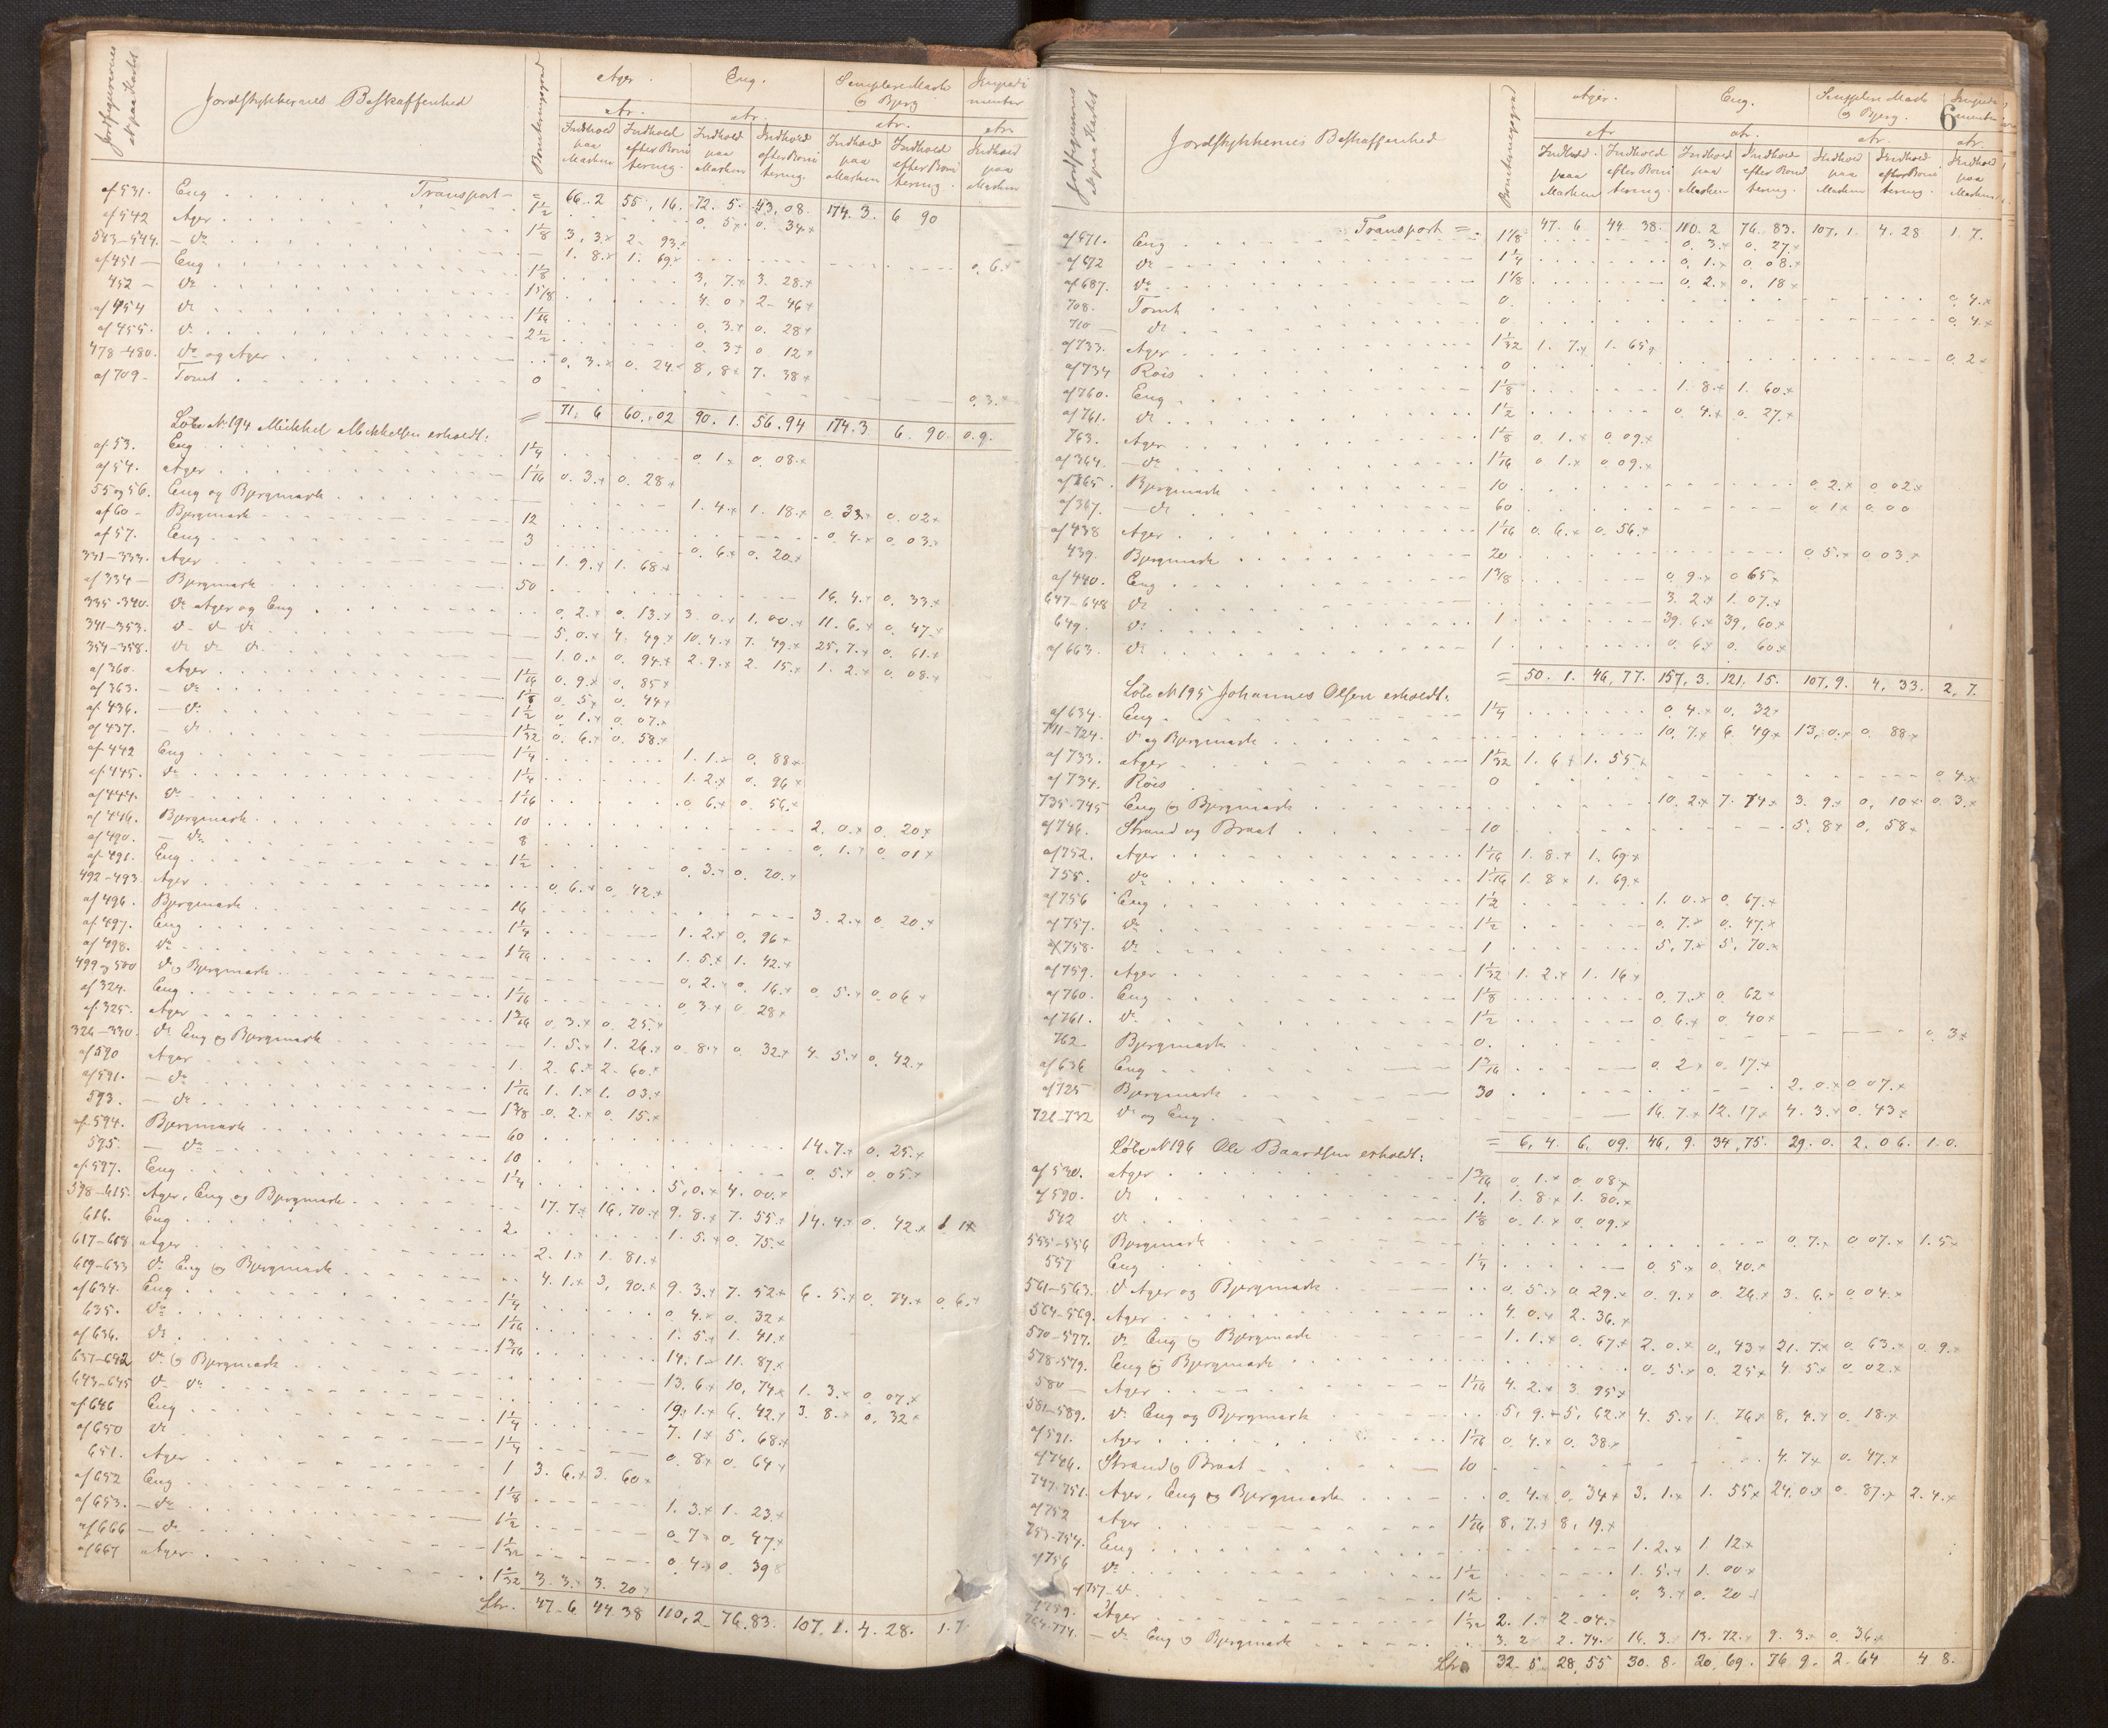 Jordfigurernes № paa Kartet | Jordstykkernes Beskaffenhed | Boniteringsgrad | Ager. | Eng. | Simplere Mark & Bjerg | Impedimenter
Ar. | Ar. | Ar. | Ar.
Indhold paa Marken | Indhold efter Bonitering. | Indhold paa Marken | Indhold efter Bonitering. | Indhold paa Marken | Indhold efter Bonitering. | Indhold paa Marken
Transport = 66. 2 55, 16. 72. 5. 43, 08. 174. 3. 6 90
af 531. Eng 1½ 0. 5 0. 34
af 542 Ager 1⅛ 3, 3. 2. 93.
543-544. do 1. 8. 1. 69.
af 451 Eng 0. 6.
452 do 1⅛ 3, 7. 3. 28.
af 454 do 1⅝ 4. 0 2. 46
af 455. do 1 1/16 0. 3. 0. 28
2½ 0. 3 0 12
478-480. do og Ager 0, 3. 0. 24. 8, 8 7. 38
af 709 Tomt 0 0. 3.
= 71, 6 60, 02 90. 1. 56. 94 174. 3 6. 90 0. 9.
Løbe № 194 Mikkel Mikkelsen erholdt:
af 53. Eng 1¼ 0 1. 0. 08.
af 54. Ager 1 1/16 0. 3. 0. 28
55 og 56. Eng og Bjergmark 1. 4. 1. 18. 0. 33 0. 02
af 60 Bjergmark 12 0. 4. 0. 03.
af 57. Eng 3 0. 6 0. 20.
331-333. Ager 1. 9. 1. 68
af 334 Bjergmark 50 16. 4. 0. 33.
335-340. do Ager og Eng 0. 2. 0. 13. 3. 0. 1. 00. 11. 6. 0. 47.
341-353. do do do 5. 0. 4. 49. 10. 4. 7. 49. 25, 7. 0. 61.
354-358. do do do 1. 0. 0. 94. 2. 9. 2. 15. 1. 2. 0. 08.
af 360. Ager 1 1/16 0. 9. 0. 85
af 363. do 1⅛ 0. 5 0. 44
af 436. do 1½ 0. 1. 0. 07.
af 437. do 1 1/32 0. 6. 0. 58.
af 442 Eng 1¼ 1. 1. 0. 88
af 445. do 1¼ 1. 2. 0. 96
af 444. do 1 1/16 0. 6. 0. 56.
af 446. Bjergmark 10 2. 0. 0. 20.
af 490. do 8 0. 1. 0. 01
af 491. Eng 1½ 0. 3. 0. 20.
492-493. Ager 0. 6. 0. 42.
af 496. Bjergmark 16 3. 2. 0 20.
af 497. Eng 1¼ 1. 2. 0, 96
af 498. do 1 1/16 1. 5. 1. 42.
499 og 500 do & Bjergmark 0. 2. 0. 16. 0. 5. 0. 06
af 324. Eng 1 1/16 0 3. 0 28
af 325. Ager 1 3/16 0. 3. 0. 25.
326-330. do Eng & Bjergmark 1. 5. 1. 26. 0. 8. 0. 32. 4. 5. 0. 42.
af 590 Ager 1. 2. 6. 2. 60.
af 591. do 1 1/16 1. 1. 1. 03.
593. do 1⅜ 0. 2. 0. 15.
af 594. Bjergmark 60 14. 7. 0. 25.
595. do 10 0. 5. 0. 05.
af 597. Eng 1¼ 5, 0. 4. 00.
598-615. Ager, Eng og Bjergmark 17. 7. 16, 70. 9. 8. 7. 55. 14. 4. 0. 42. 1 1
616. Eng 2. 1. 5. 0. 75.
617-618 Ager 2. 1. 1. 81.
619-633 do Eng & Bjergmark 4. 1. 3, 90. 9. 3. 7. 52 6. 5. 0. 74. 0. 6.
af 634. Eng 1¼ 0 4. 0. 32
635. do 1 1/16 1. 5. 1. 41.
af 636. do 1 3/16 14. 1. 11. 87.
637-642 do & Bjergmark 13. 6 10, 74 1. 3. 0. 07.
643-645 do do 19. 1. 6. 42. 3. 8. 0. 32
af 646 Eng 1¼ 7. 1 5, 68.
af 650 do 1¼ 0. 8 0. 64
651. Ager 1 3. 6. 3. 60
af 652 Eng 1⅛ 1. 3. 1. 23.
af 653. do 1½ 0. 7 0. 47.
af 666 do 1 1/32 0. 4. 0. 39
af 667 Ager 1 1/32 3. 3. 3. 20
Ltr. 47. 6 44 38 110, 2 76. 83. 107. 1. 4. 28. 1. 7
6
Jordfigurernes № paa Kartet | Jordstykkernes Beskaffenhed | Boniteringsgrad | Ager. | Eng. | Simplere Mark & Bjerg.
Ar | Ar. | Ar | Ar.
Indhold paa Marken | Indhold efter Bonitering. | Indhold paa Marken | Indhold efter Bonitering. | Indhold paa Marken | Indhold efter Bonitering. | Indhold paa Marken
Transport = 47. 6 44 38. 110. 2 76. 83. 107, 1. 4. 28 1. 7.
af 671. Eng 1⅛ 0. 3. 0. 27.
af 672 do 1¼ 0, 1. 0. 08.
af 687. do 1⅛ 0. 2. 0, 18
708. Tomt 0. 0. 4.
710 do 0 0. 4.
af 733. Ager 1 1/32 1. 7. 1. 65
af 734 Røis 0 0. 2
af 760. Eng 1⅛ 1. 8. 1. 60.
af 761. do 1½ 0. 4. 0. 27.
763. Ager 1⅛ 0, 1. 0 09.
af 364. do 1 1/16 0 1. 0, 09.
af 365. Bjergmark 10 0. 2. 0 02.
af 367. do 60 0 1 0, 00
af 438 Ager 1 1/16 0. 6. 0. 56.
439. Bjergmark 20 0 5. 0 03.
af 440. Eng 1⅜ 0. 9. 0 65
647-648 do 3. 2. 1. 07.
649. do 1 39. 6 39. 60.
af 663. do 1 0. 6 0. 60.
= 50. 1. 46, 77. 157, 3. 121, 15. 107, 9. 4, 33. 2, 7.
Løbe № 195 Johannes Olsen erholdt:
af 634. Eng 1¼ 0. 4. 0. 32
711-724. do og Bjergmark 10, 7. 6 49. 13, 0. 0. 88.
af 733. Ager 1 1/32 1. 6 1. 55
af 734. Røis 0 0 4.
735-745 Eng & Bjergmark 10. 2. 7. 74. 3. 9. 0, 10 0. 3.
af 746. Strand og Braat 10 5. 8 0. 58
af 752. Ager 1 1/16 1. 8. 1. 69.
755. do 1 1/16 1. 8 1. 69.
af 756 Eng 1½ 1. 0. 0. 67.
af 757. do 1½ 0. 7. 0. 47.
af 758. do 1 5, 7. 5, 70.
af 759. Ager 1 1/32 1. 2. 1. 16
af 760. Eng 1⅛ 0. 7. 0. 62
af 761. do 1½ 0. 6. 0. 40
762 Bjergmark 0. 0. 3
af 636 Eng 1 3/16 0. 2 0. 17.
af 725 Bjergmark 30 2. 0. 0 07.
726-732 do og Eng 16 7. 12. 17. 4. 3. 0. 43
= 6, 4. 6, 09. 46, 9. 34, 75. 29. 0. 2, 06. 1. 0.
Løbe № 196 Ole Baardsen erholdt:
af 530. Ager 1 3/16 0. 1. 0 08.
af 590. do 1. 1. 8. 1. 80.
592 do 1⅛ 0. 1. 0. 09.
555-556 Bjergmark 0. 7. 0 07. 1. 5
557 Eng 1¼ 0 5. 0. 40.
561-563. do Ager og Bjergmark 0. 5. 0 29. 0. 9. 0. 26. 3. 6. 0 04.
564-569. Ager 4. 0. 2. 36.
570-577. do Eng & Bjergmark 1. 1. 0. 67. 2. 0. 0, 43 21. 7. 0. 63. 0. 9.
578-579. Eng & Bjergmark 0. 5. 0. 25 4. 5 0. 02.
580 Ager 1 1/16 4. 2. 3. 95
581-589. do Eng og Bjergmark 5, 9. 5, 62 4. 5. 1. 76 8, 4. 0. 18.
af 591. Ager 1 1/16 0. 4. 0. 38
af 746. Strand & Braat 10 4. 7 0. 47.
747-751. Ager, Eng & Bjergmark 0. 4. 0. 34 3, 1. 1. 55 24. 0. 0. 87. 2. 4.
af 752 Ager 1 1/16 8, 7. 8, 19.
753-754. Eng 1. 2. 1. 12
af 756 do 1½ 1. 5. 1. 00
af 757 do 1½ 0. 3. 0. 20
af 759. Ager 1 1/32 2. 1. 2. 04.
764-774. do Eng & Bjergmark 3. 2 2. 74. 16. 3. 13. 72. 9. 3. 0. 36.
Ltr. 32. 5 28, 55 30. 8. 20, 69. 76 9. 2. 64 4 8.